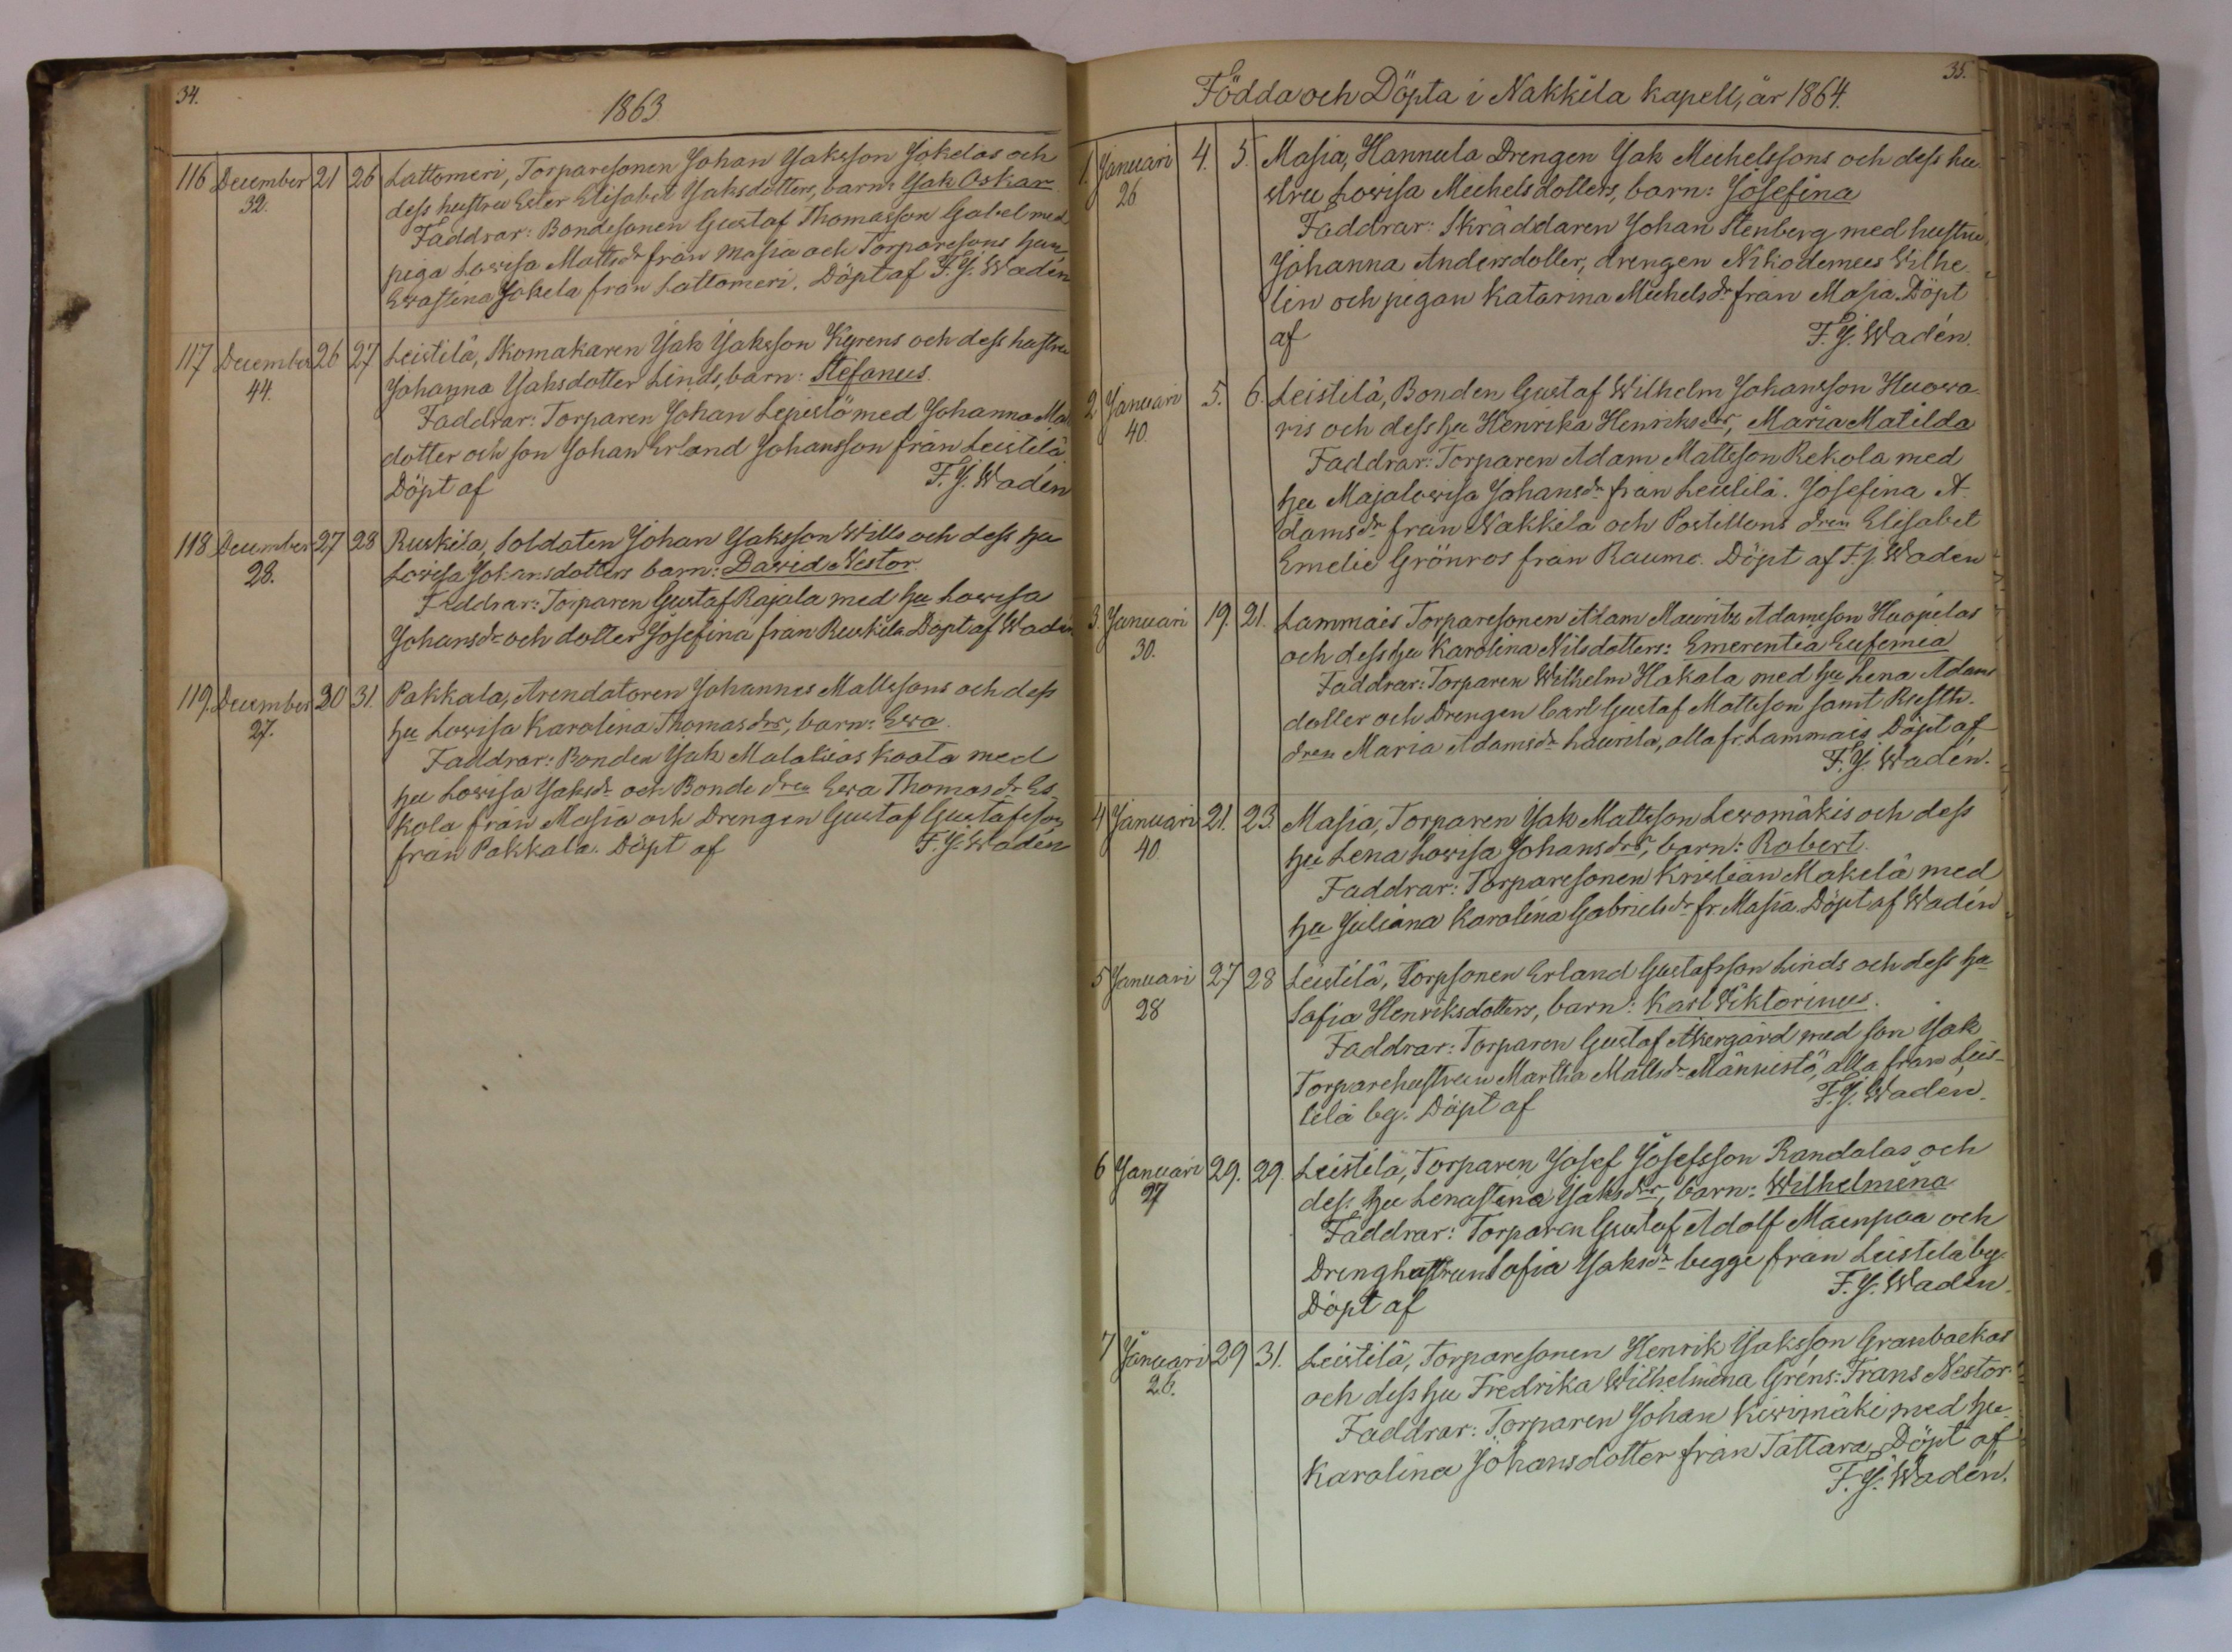 34.
1863
116 December 21 26 Lattomeri, Torparesonen Johan Jaksson Jokelas och
32. dess hustru Ester Elisabet Jaksdotters, barn: Jak Oskar
Faddrar: Bondesonen Gustaf Thomasson Gabel med
piga Lovisa Mattsdr från Masia och Torparesons hu
Evastina Jokela från Lattomeri. Döpt af F. J. Wadén
117 December 26 27 Leistilä, Skomakaren Jak Jaksson Kyrens och dess hustru
44. Johanna Jaksdotter Linds, barn: Stefanus.
Faddrar: Torparen Johan Lepistö med Johanna Ma
dotter och son Johan Erland Johansson från Leistilä.
Döpt af F. J. Wadén
118 December 27 28 Ruskila, Soldaten Johan Jaksson Wills och dess hu
28. Lovisa Johansdotters barn: David Nestor.
Faddrar: Torparen Gustaf Rajala med hu Lovisa
Johansdr och dotter Josefina från Ruskila Döpt af Wadén
119. December 30 31. Pakkala, Arendatoren Johannes Mattssons och dess
27. hu Lovisa Karolina Thomasdrs, barn: Ewa.
Faddrar: Bonden Jak Malakias Kaata med
hu Lovisa Jaksdr och Bonde dren Ewa Thomasdr Es-
kola från Masia och Drengen Gustaf Gustafsson
från Pakkala. Döpt af F. J. Wadén
35.
Födda och Döpta i Nakkila kapell, år 1864.
1. Januari 4. 5. Masia, Hannula Drengen Jak Michelssons och dess hu
26 stru Lovisa Michelsdotters, barn: Josefina
Faddrar: Skräddaren Johan Stenberg med hustru
Johanna Andersdotter, drengen Nikodemus Wilhe-
lin och pigan Katarina Michelsdr från Masia. Döpt
af F. J. Wadén.
2 Januari 5. 6. Leistilä, Bonden Gustaf Wilhelm Johansson Huowa-
40. ris och dess hu Henrika Henriksdrs, Maria Matilda
Faddrar: Torparen Adam Mattsson Rekola med
hu Majalovisa Johansdr från Leistilä. Josefina A-
damsdr från Nakkila och Postillons dren Elisabet
Emelie Grönros från Raumo. Döpt af F. J. Wadén
3. Januari 19. 21. Lammais Torparesonen Adam Mauritz Adamsson Haapelas
30. och dess hu Karolina Nilsdotters: Emerentia Eufemia
Faddrar: Torparen Wilhelm Hakala med hu Lena Adams
dotter och Drengen Carl Gustaf Mattsson samt
dren Maria Adamsdr Laurila, alla fr. Lammais Döpt af
F. J. Wadén.
4 Januari 21. 23. Masia, Torparen Jak Mattsson Lewomäkis och dess
40 hu Lena Lovisa Johansdrs, barn: Robert.
Faddrar: Torparesonen Kristian Makelä med
hu Juliana Karolina Gabrielsdr fr. Masia. Döpt af Wadén
5 Januari 27 28 Leistilä, Torpsonen Erland Gustafsson Linds och dess hu
28 Sofia Henriksdotters, barn: Karl Viktorinus.
Faddrar: Torparen Gustaf Akergård med son Jak
Torparehustrun Martha Mattsdr Männistö, alla från Leis-
tilä by. Döpt af F. J. Wadén.
6 Januari 29. 29. Leistilä, Torparen Josef Josefsson Randalas och
27 dess hu Lenastina Jaksdrs, barn: Wilhelmina
Faddrar: Torparen Gustaf Adolf Mäenpaa och
Dreng hustrun Sofia Jaksdr begge från Leistilä by.
Döpt af F. J. Wadén.
7 Januari 29 31. Leistilä, Torparesonen Henrik Jaksson Granbackas
26. och dess hu Fredrika Wilhelmina Gréns: Frans Nestor.
Faddrar: Torparen Johan Kiwimäki med hu
Karolina Johansdotter från Tattara. Döpt af
F. J. Wadén.